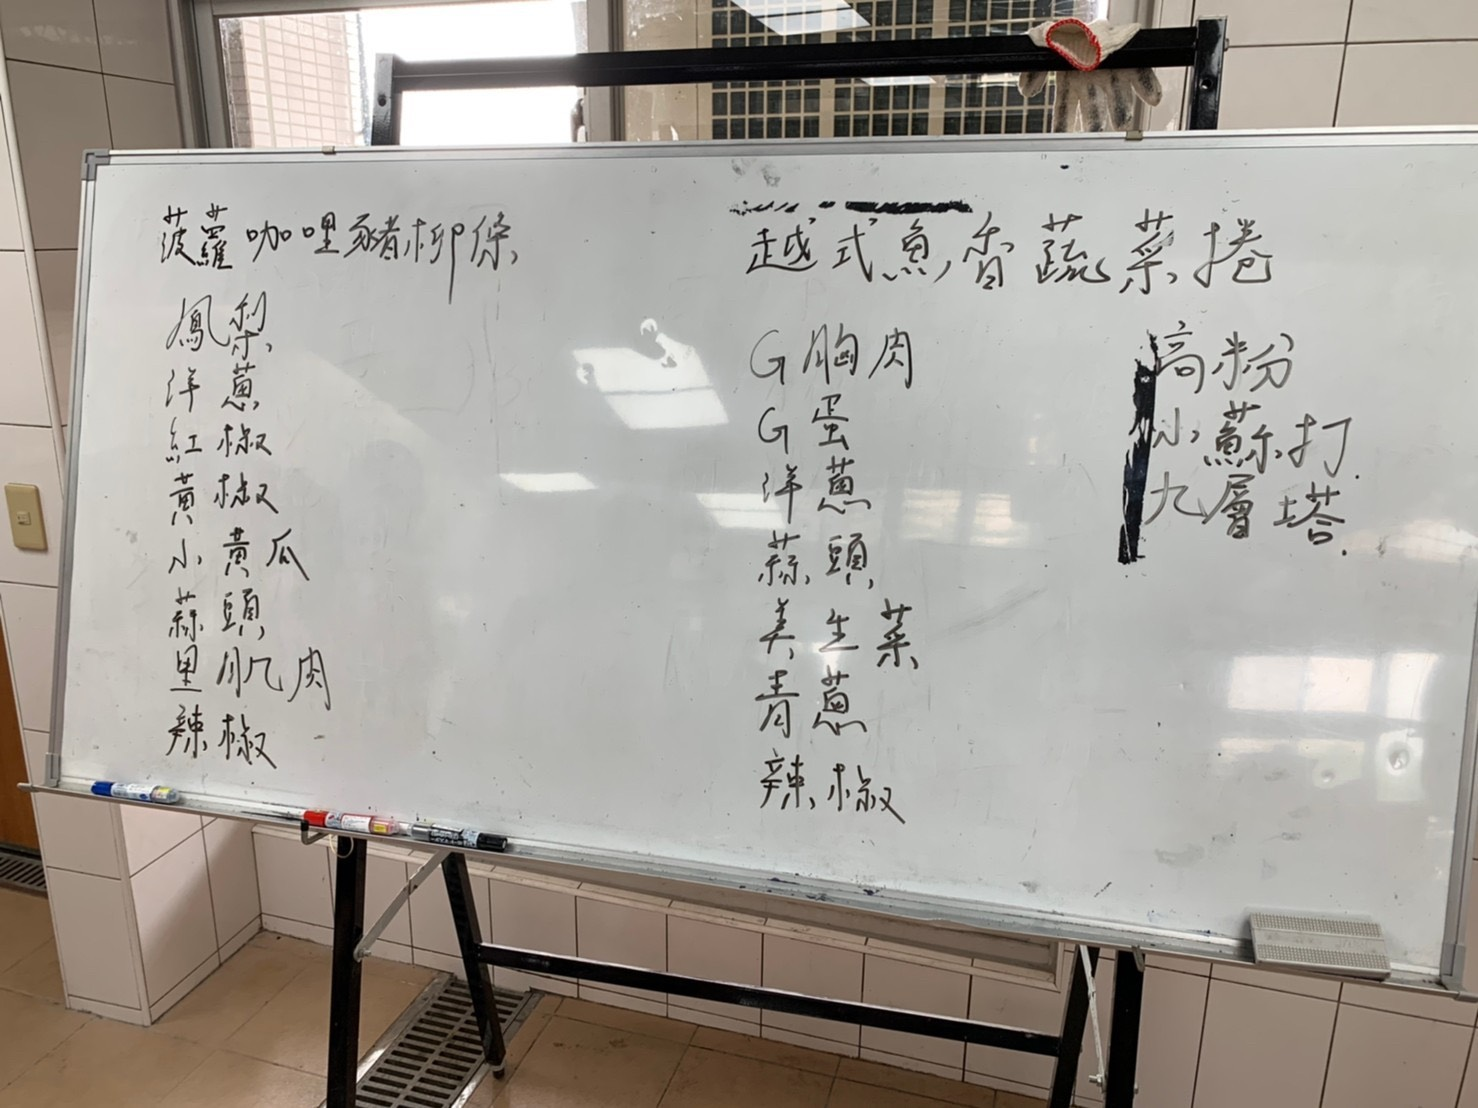 菠蘿咖哩豬柳條
鳳梨
洋蔥
紅椒
黃椒
小黃瓜
蒜頭
里肌肉
辣椒
越式魚香蔬菜捲
G胸肉
G蛋
洋蔥
蒜頭
美生菜
青蔥
辣椒
高粉
小蘇打
九層塔